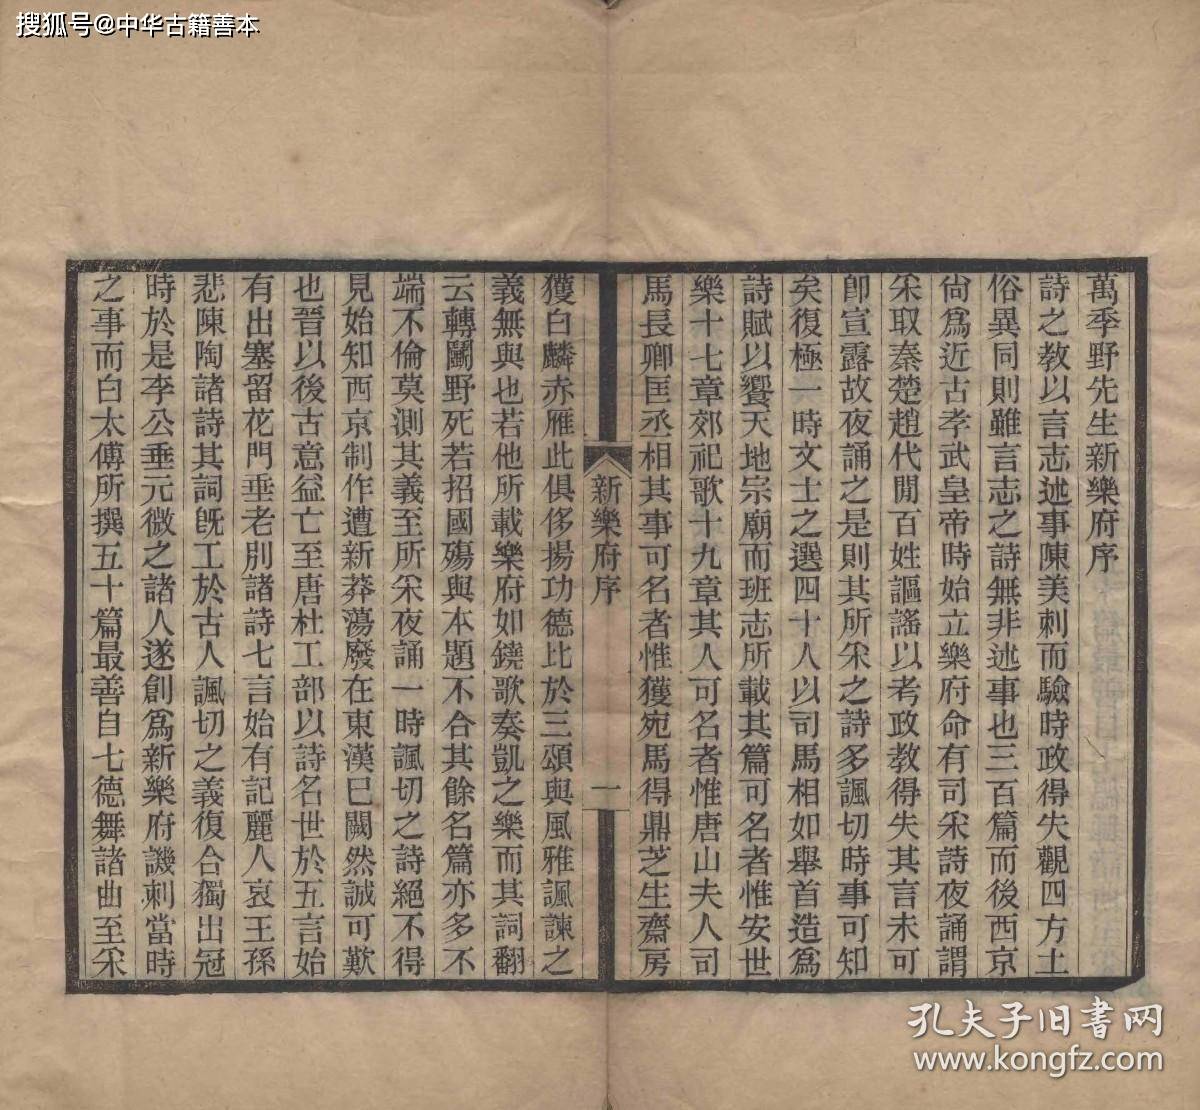 搜狐号@中华古籍善本
萬季野先生新樂府序
詩之教以言志述事陳美刺而驗時政得失觀四方土
俗異同則雖言志之詩無非述事也三百篇而後西京
尙爲近古孝武皇帝時始立樂府命有司采詩夜誦謂
采取秦楚趙代閒百姓謳謠以考政教得失其言未可
卽宣露故夜誦之是則其所采之詩多諷切時事可知
矣復極一時文士之選四十人以司馬相如舉首造爲
詩賦以饗天地宗廟而班志所載其篇可名者惟安世
樂十七章郊祀歌十九章其人可名者惟唐山夫人司
馬長卿匡丞相其事可名者惟獲宛馬得鼎芝生齋房
新樂府序
一
獲白麟赤雁此俱侈揚功德比於三頌與風雅諷諫之
義無與也若他所載樂府如鐃歌奏凱之樂而其詞翻
云轉鬭野死若招國殤與本題不合其餘名篇亦多不
端不倫莫測其義至所采夜誦一時諷切之詩絕不得
見始知西京制作遭新莽蕩廢在東漢已闕然誠可歎
也晉以後古意益亡至唐杜工部以詩名世於五言始
有出塞留花門垂老別諸詩七言始有記麗人哀王孫
悲陳陶諸詩其詞旣工於古人諷切之義復合獨出冠
時於是李公垂元微之諸人遂創爲新樂府譏刺當時
之事而白太傅所撰五十篇最善自七德舞諸曲至采
孔夫子旧书网
www.kongfz.com